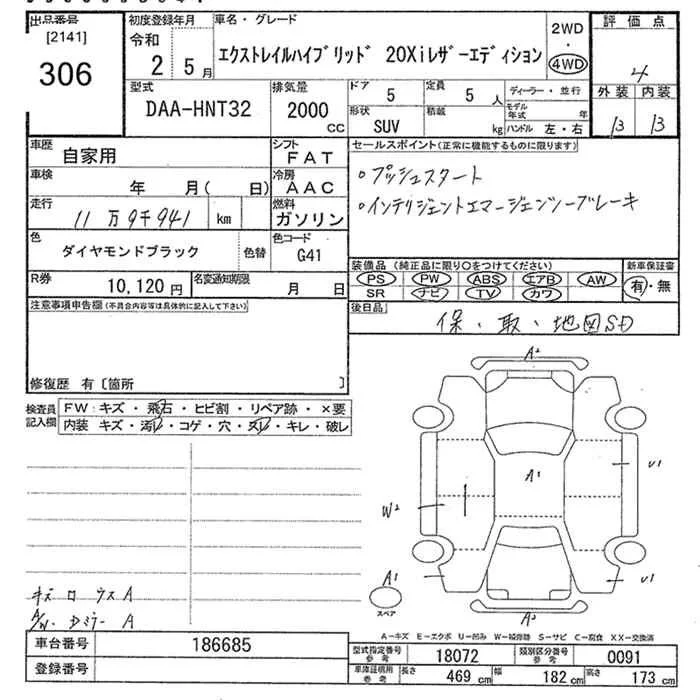 出品番号 [2141] 306
初度登録年月 令和 2 5月
車名・グレード エクストレイルハイブリッド 20Xiレザーエディション
2WD ・ 4WD
評価点 4
型式 DAA-HNT32
排気量 2000 CC
ドア 5 定員 5人
形状 SUV 積載 kg
ディーラー・並行
モデル年式 年
ハンドル 左・右
外装 内装
B B
車歴 自家用
シフト FAT
車検 年 月( 日)
冷房 AAC
走行 11万9千941 km
燃料 ガソリン
色 ダイヤモンドブラック 色替
色コード G41
R券 10,120円
名変通知期限 月 日
セールスポイント(正常に機能するものに限ります)
・プッシュスタート
・インテリジェントエマージェンシーブレーキ
装備品 (純正品に限り○をつけてください) 新車保証書
PS PW ABS エアB AW 有・無
SR ナビ TV カワ
後日品 保・取・地図SD
注意事項申告欄(不具合内容等は具体的に記入して下さい)
修復歴 有〔箇所 〕
検査員記入欄
FW:キズ・飛石・ヒビ割・リペア跡・×要
内装 キズ・汚レ・コゲ・穴・スレ・キレ・破レ
A2
A1
U1
W2
A1
U1
A2
スペア
キズ ロ ウス A
A/W・Dミラー A
A-キズ E-エクボ U-凹み W-補修跡 S-サビ C-腐食 XX-交換済
車台番号 186685
登録番号
型式指定番号 参考 18072 類別区分番号 参考 0091
車庫証明用 参考 長さ 469 cm 幅 182 cm 高さ 173 cm